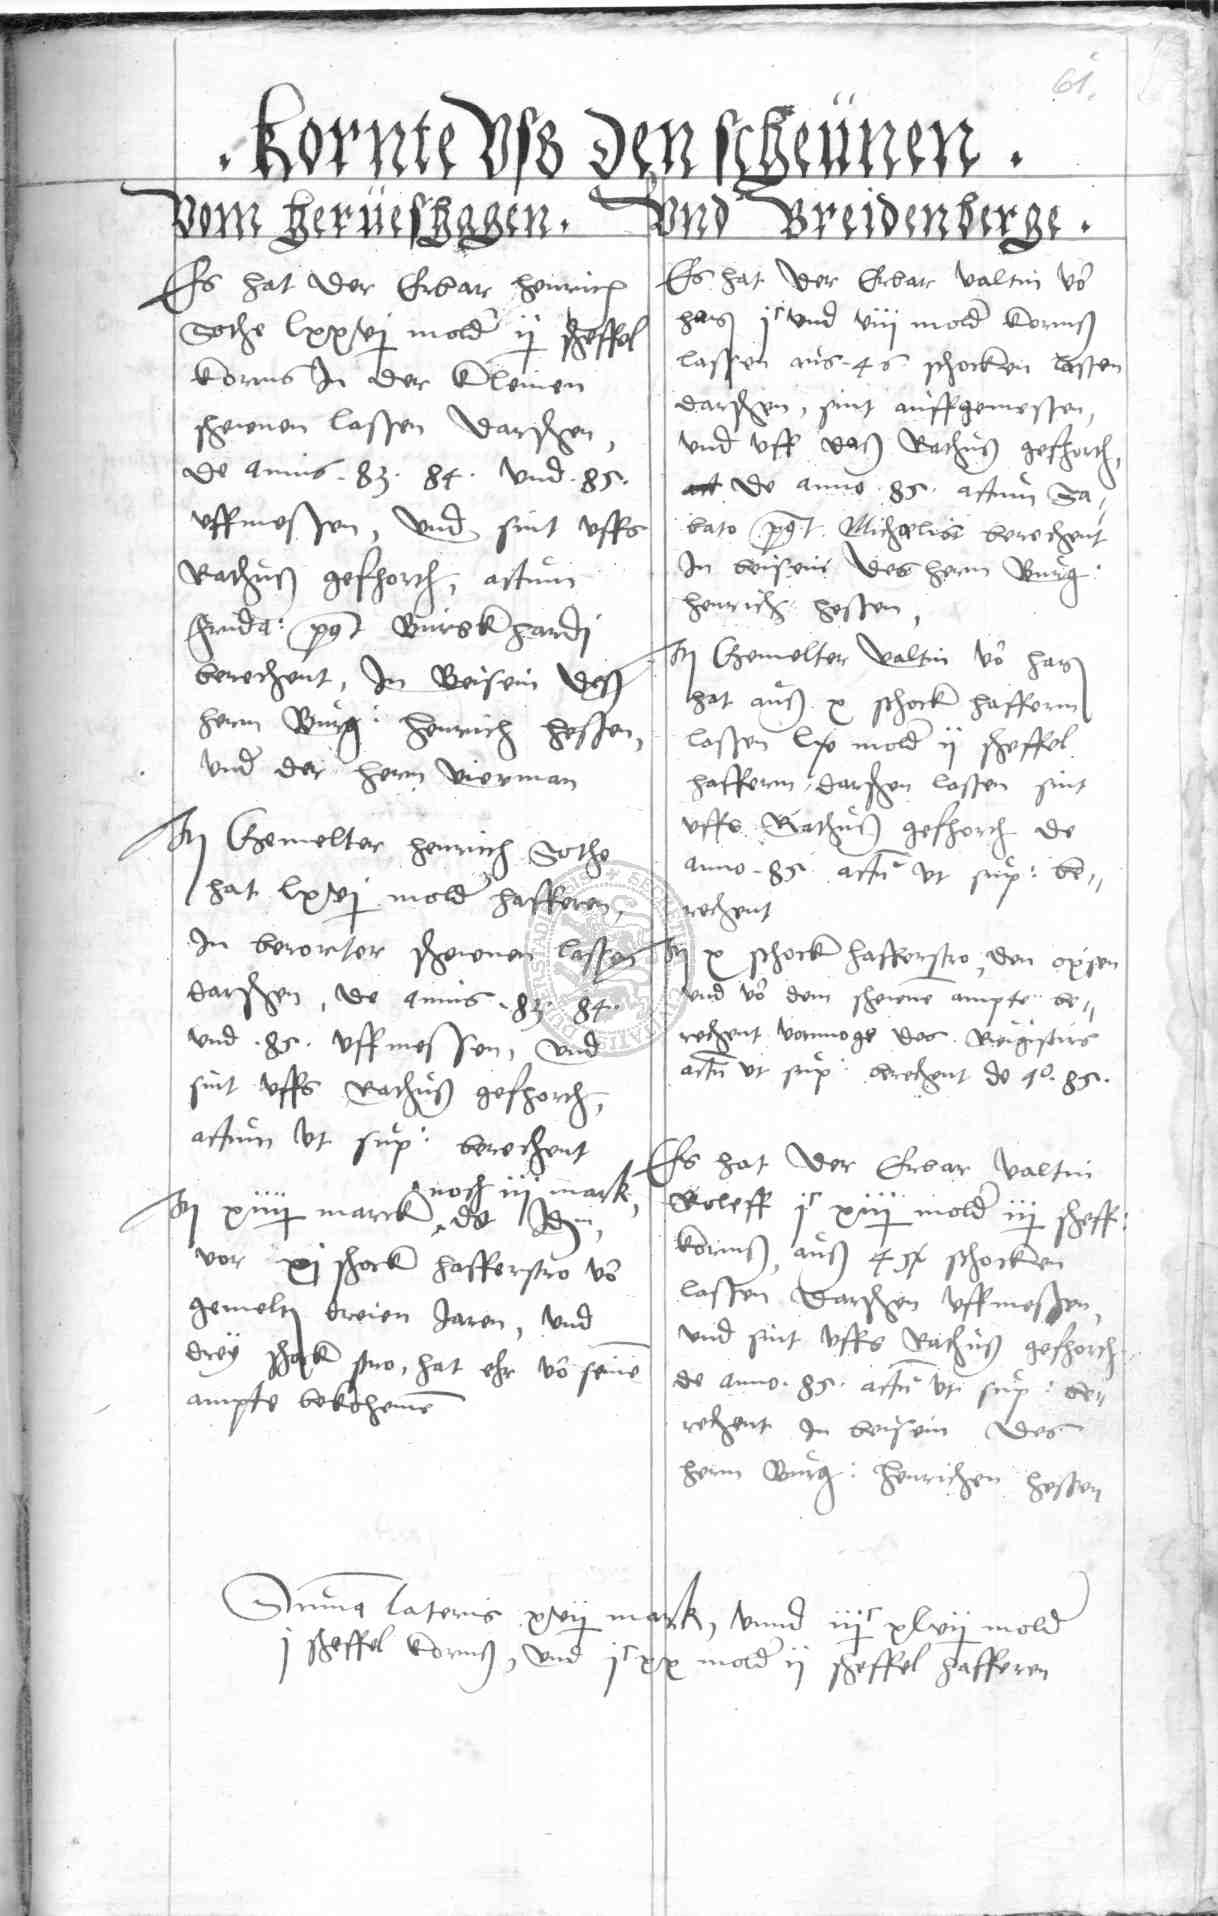 61.
. Kornte Vß den scheünen .
Vom herüeshagen. Vnd Breidenberge .
Es hat der Erbar henrich
Sothe lxxvj mold ij scheffel
korns In der kleinen
scheunen lassen darschen,
de annis . 83 . 84 . vnd . 85 .
vffmessen, vnd sint vffs
Rathuß gefhorth, actum
frida: post Burskhardj
berechent, In Beisein des
hern Burg: henrich hessen,
vnd der hern vierman
Gemelter henrich Sothe
hat lxvj mold hafferen,
In berorter scheunen lassen
darschen, de annis . 83 . 84 .
vnd . 85 . vffmessen, vnd
sint vffs Rathuß gefhorth,
actum vt sup: berechent
noch iij mark,
xiiij marck de Idem,
vor xj schock hafferstro vo
gemelt dreien Jaren, vnd
drey schock stro, hat ehr vo seine
ampte bekohemē
Es hat der Erbar valtin vō
harß jc vnd viij mold kornß
lassen aus . 46 schocken lassen
darschen, sint auffgemessen,
vnd vff daß Rathuß gefhorth,
de anno . 85 . actum Sa-
bato post Michaelis berechent
In beisein des hern Burg:
henrich hessen,
Gemelter valtin vō harß
hat auß x schock hafferm
lassen mold ij scheffel
hafferm darschen lassen sint
vffs Rathuß gefhorth de
anno . 85 actū vt sup: be-
rechent
x schock hafferstro, den oxsen
vnd vō dem scheune ampte be-
rechent vermoge des Registers
actū vt sup: berechent de ao . 85 .
Es hat der Erbar valtin
Roleff jc xiiij mold iij scheff:
kornß, auß schocken
lassen darschen vffmessen,
vnd sint vffs Rathuß gefhorth
de anno . 85 . actū vt sup: be-
rechent In beisein des
hern Burg: henrichen hessen
Summa lateris xvij mark, vnnd iijc xlvij mold
j scheffel kornß, vnd jc xx mold ij scheffel hafferen